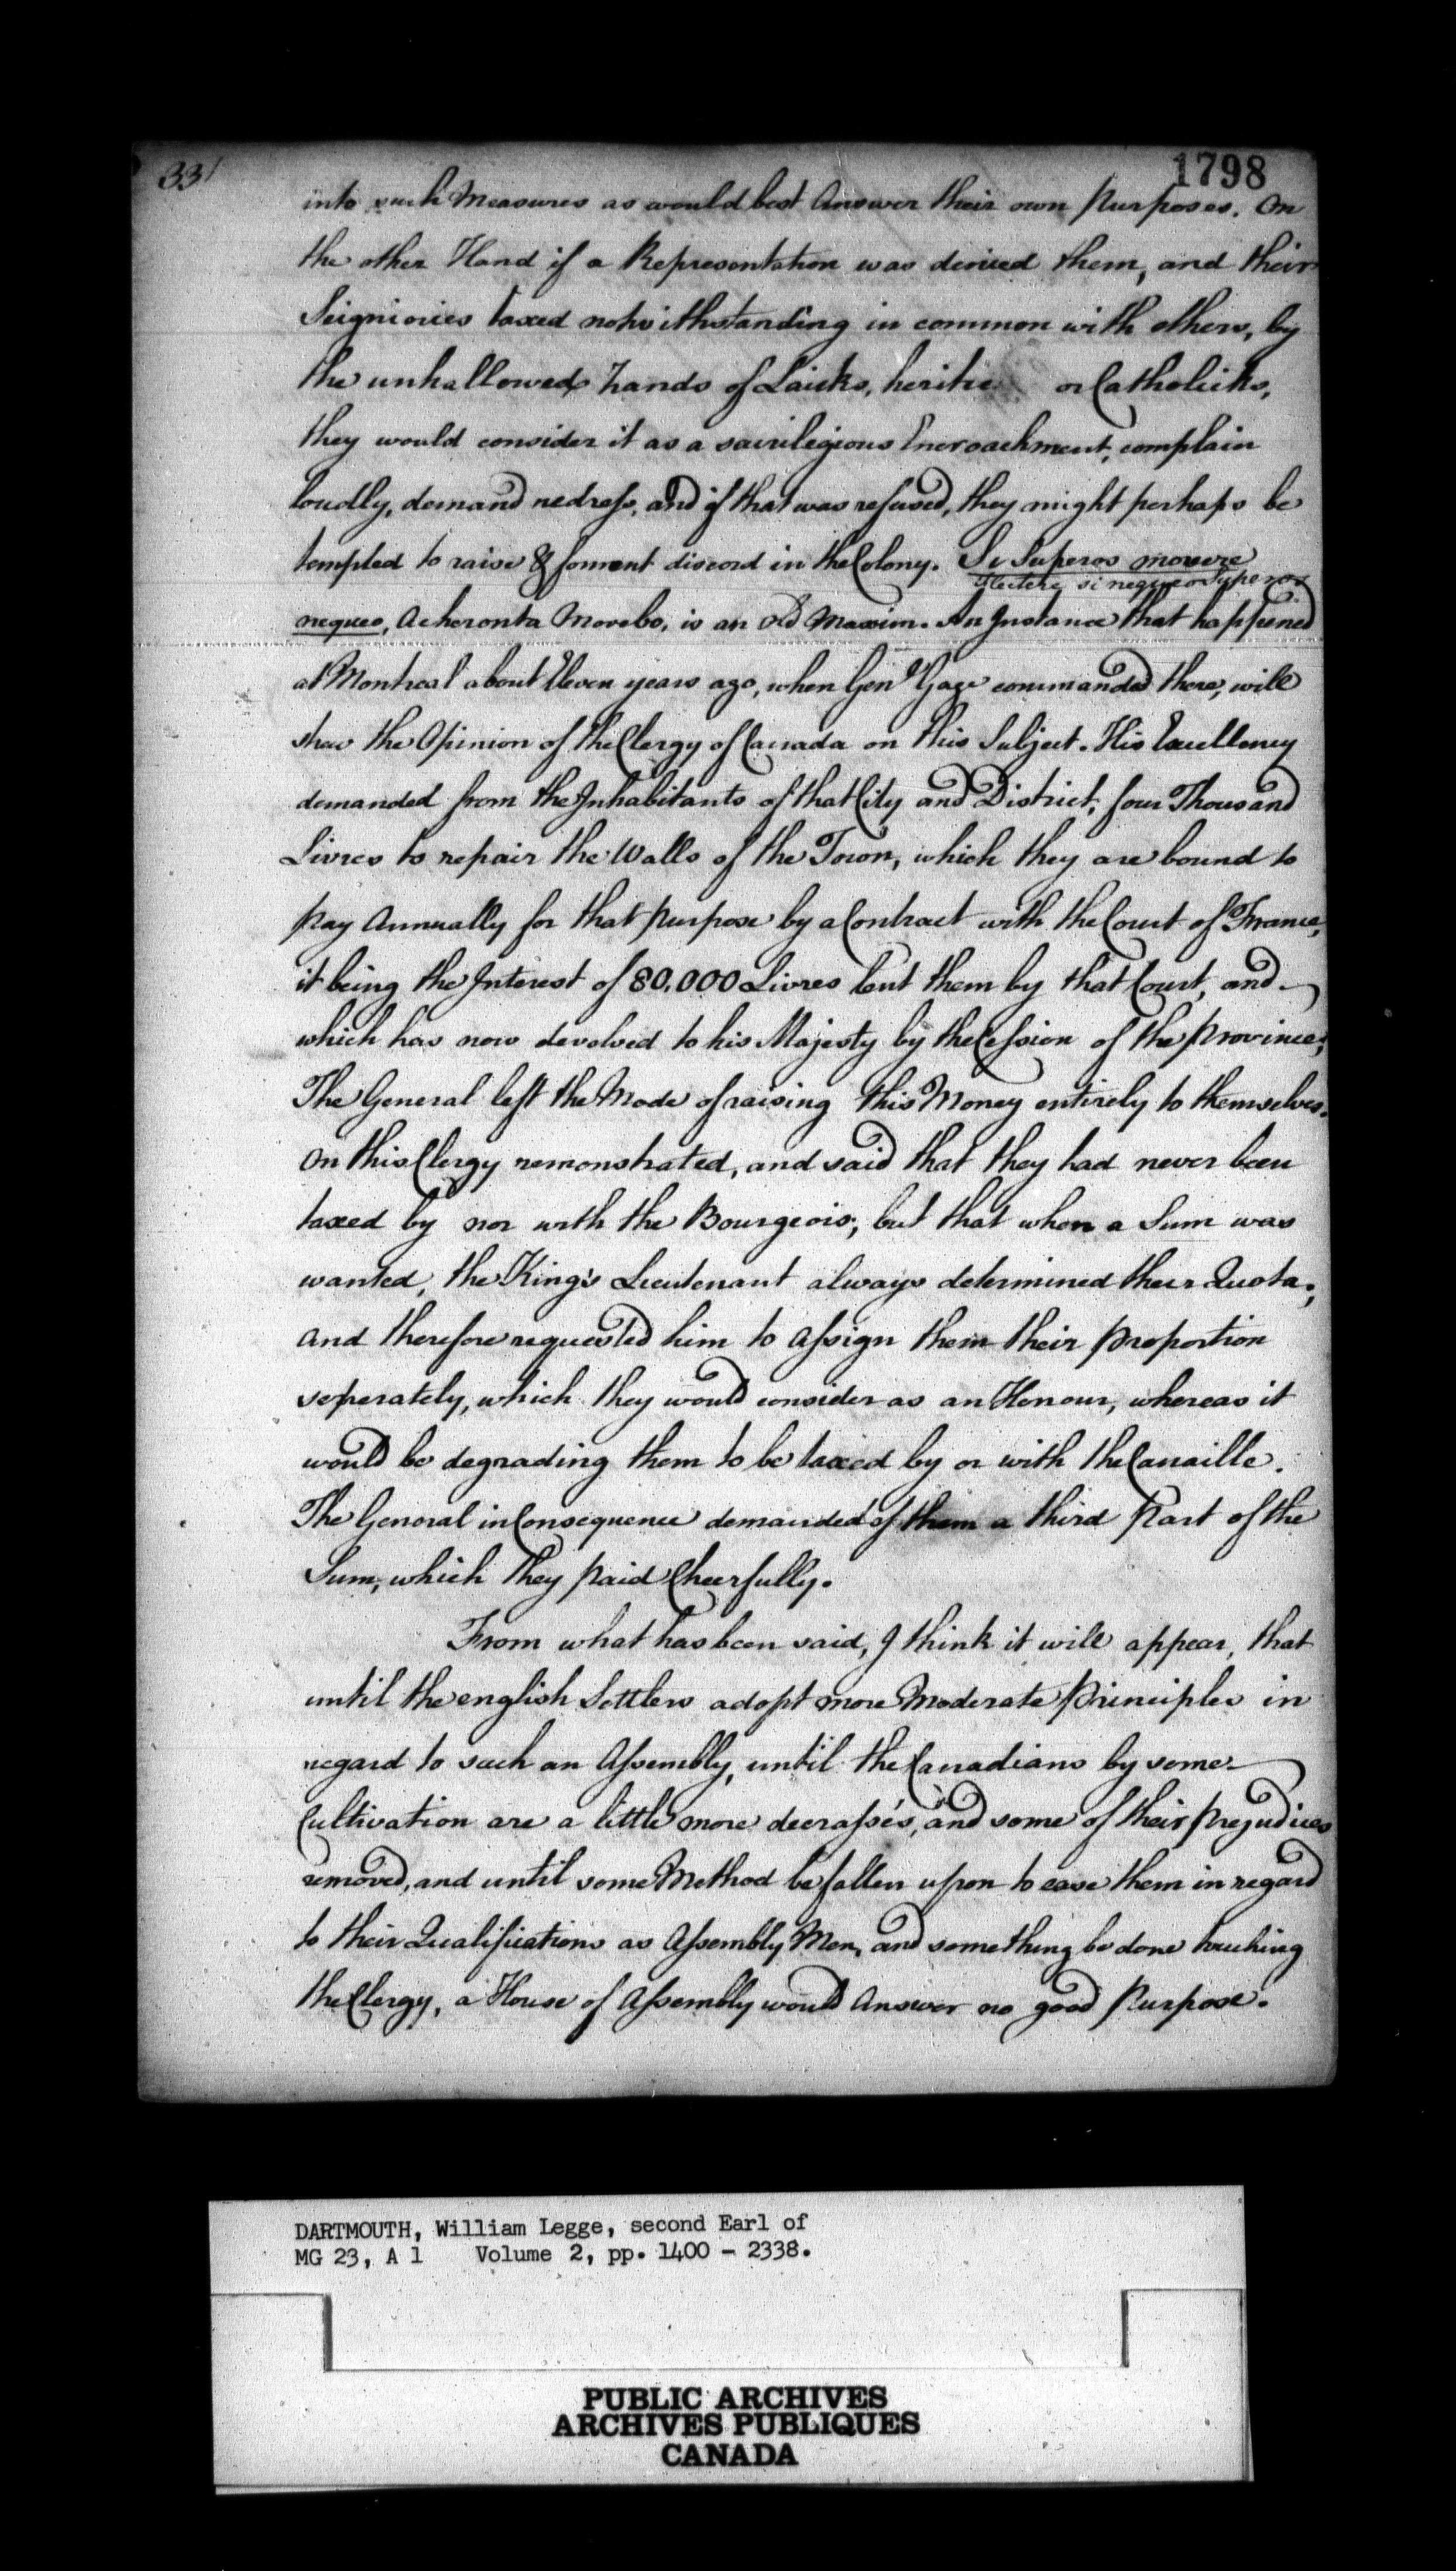 331
1798
into such Measures as would best Answer their own Purposes. On
the other Hand if a Representation was denied them, and their
Seigniories taxed notwithstanding in common with others, by
the unhallowed hands of Laicks, or Catholicks,
they would consider it as a sacrilegious Encroachment, complain
loudly, demand redress, and if that was refused, they might perhaps be
tempted to raise & foment discord in the Colony. Si Superos movere
flectere si nequeo Superos
nequeo, Acheronta Movebo, is an old Maxim. An Instance that happened
at Montreal about Eleven years ago, when Genl Gage commanded there, will
shew the Opinion of the Clergy of Canada on this Subject. His Excellency
demanded from the Inhabitants of that City and District, four Thousand
Livres to repair the Walls of the Town, which they are bound to
pay Annually for that purpose by a Contract with the Court of France,
it being the Interest of 80,000 Livres lent them by that Court, and
which has now devolved to his Majesty by the Cession of the Province;
The General left the Mode of raising this Money entirely to themselves.
On this Clergy remonstrated, and said that they had never been
taxed by nor with the Bourgeois; but that when a Sum was
wanted, the King's Lieutenant always determined their Quota;
and therefore requested him to assign them their proportion
seperately, which they would consider as an Honour, whereas it
would be degrading them to be taxed by or with the Canaille.
The General in Consequence demanded of them a third Part of the
Sum, which they paid Cheerfully.
From what has been said, I think it will appear, that
until the english Settlers adopt more Moderate Principles in
regard to such an Assembly, until the Canadians by some
Cultivation are a little more decrassés, and some of their prejudices
removed, and until some Method be fallen upon to ease them in regard
to their Qualifications as Assembly Men, and something be done touching
the Clergy, a House of Assembly would Answer no good Purpose.
DARTMOUTH, William Legge, second Earl of
MG 23, A 1 Volume 2, pp. 1400 - 2338.
PUBLIC ARCHIVES
ARCHIVES PUBLIQUES
CANADA